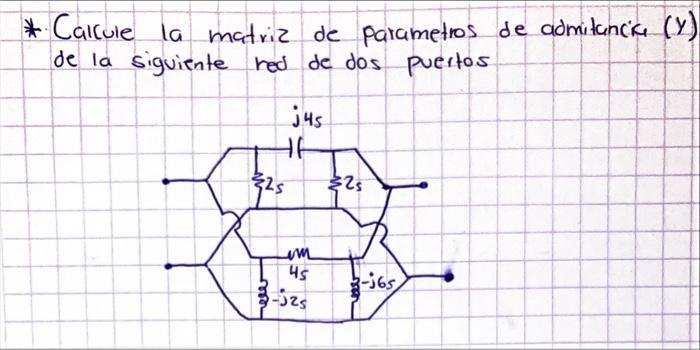 * Calcule la matriz de parametros de admitancia (Y)
de la siguiente red de dos puertos
j4s
2s
2s
4s
-j2s
-j6s